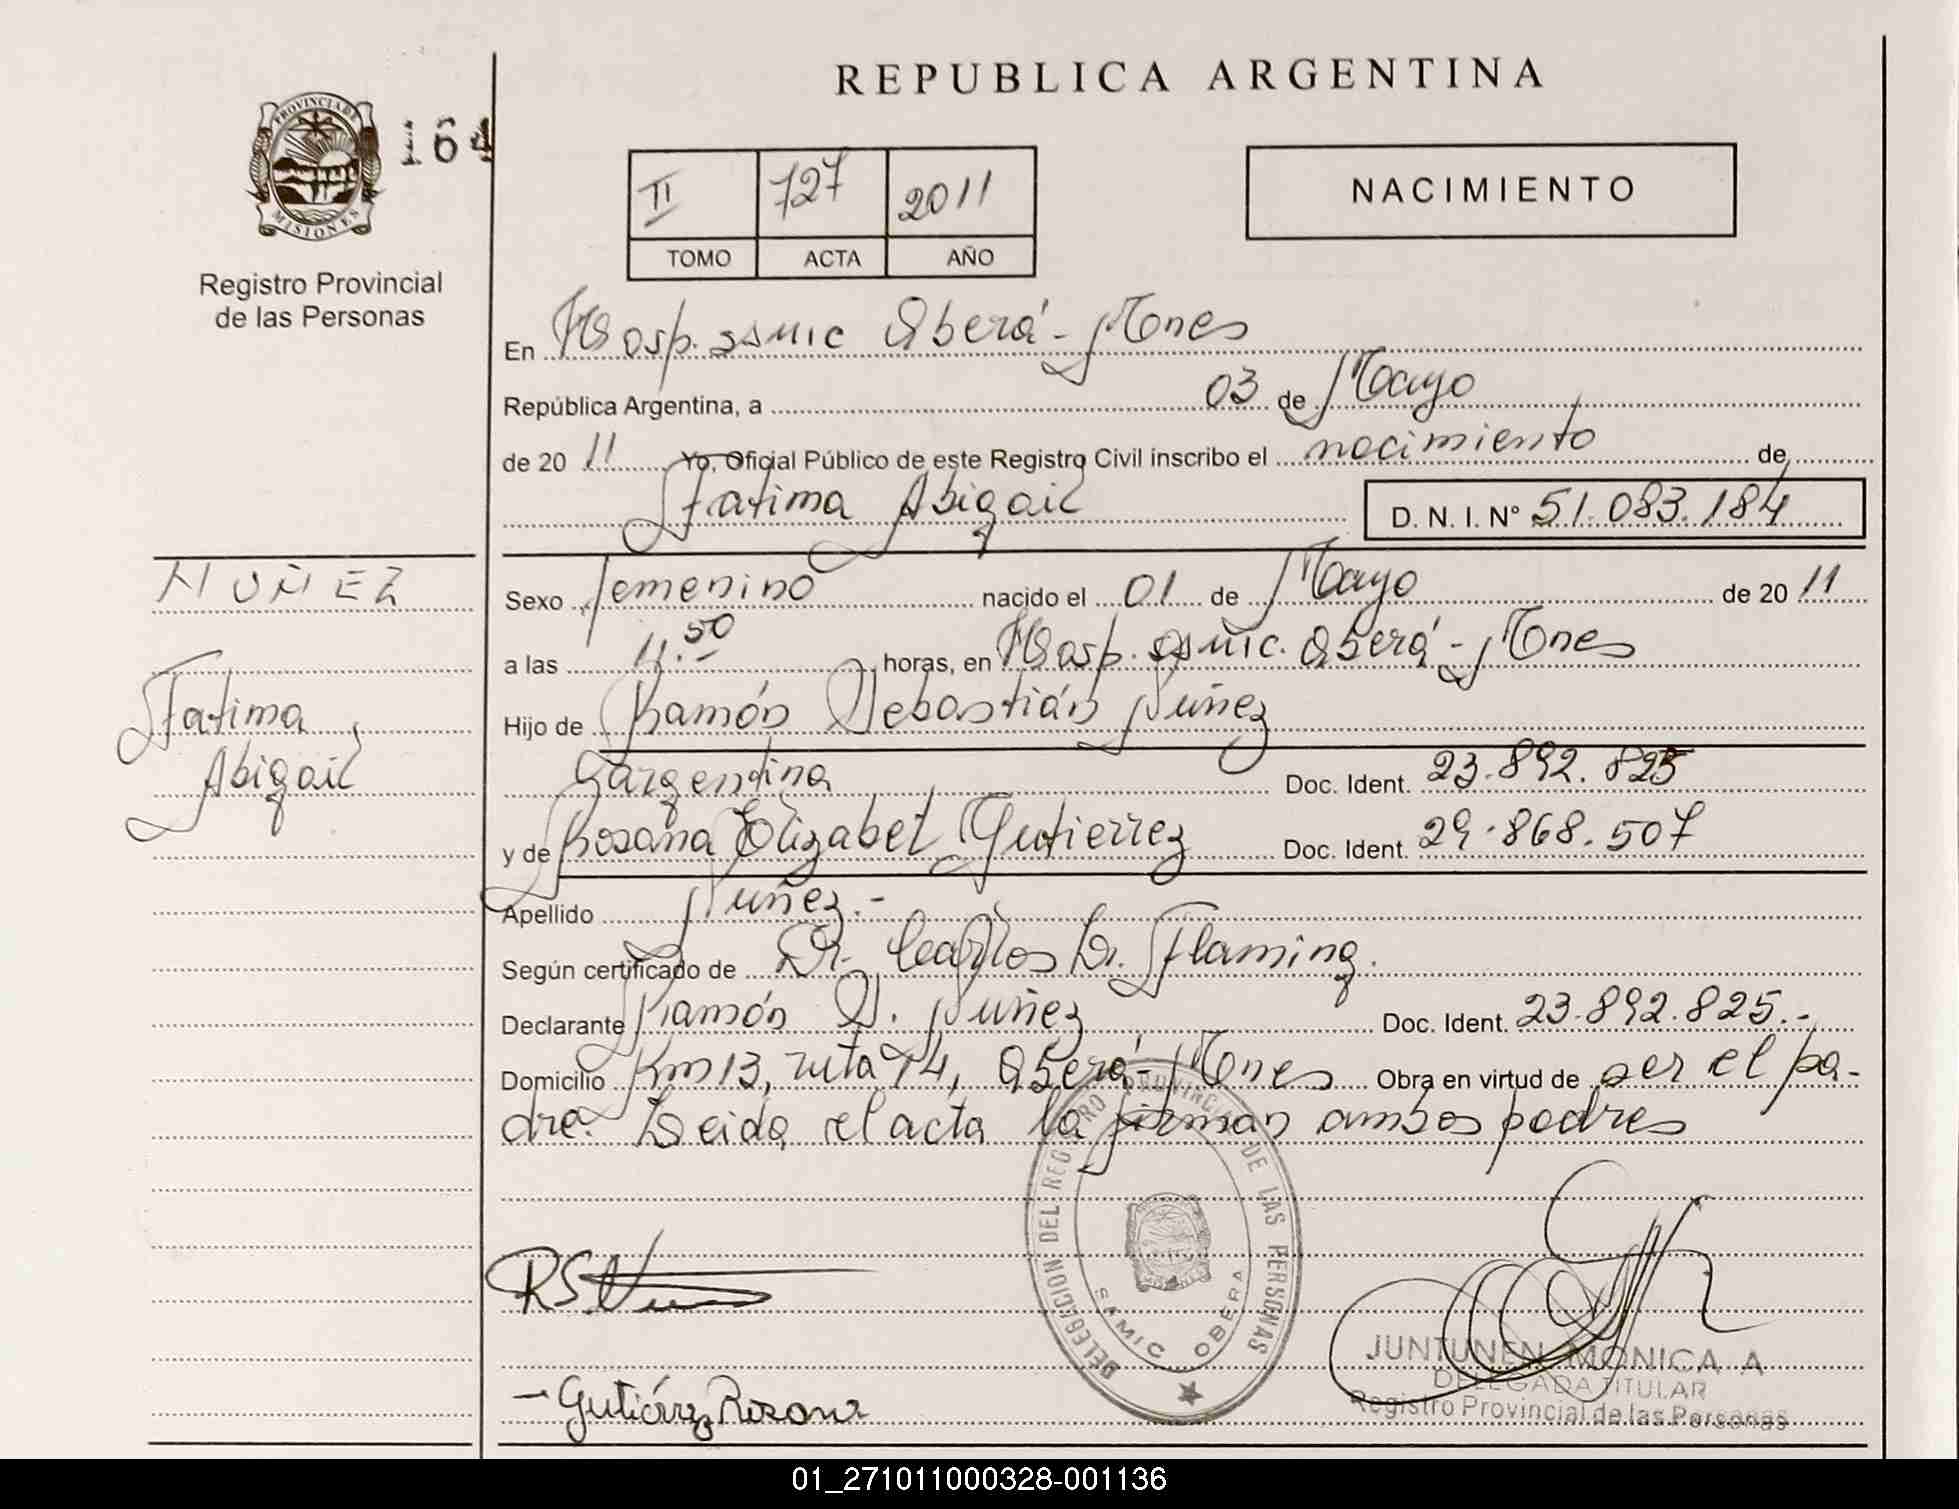 REPUBLICA ARGENTINA
PROVINCIA DE
MISIONES
164
Registro Provincial
de las Personas
II 727 2011
TOMO ACTA AÑO
NACIMIENTO
En Hosp. SAMIC Oberá - Mones
República Argentina, a 03 de Mayo
de 20 11 Yo, Oficial Público de este Registro Civil inscribo el nacimiento de
Fatima Abigail D. N. I. N° 51.083.184
NUÑEZ
Fatima
Abigail
Sexo femenino nacido el 01 de Mayo de 20 11
a las 11.50 horas, en Hosp. SAMIC. Oberá - Mones
Hijo de Ramón Sebastián Núñez
argentina Doc. Ident. 23.892.825
y de Rosana Elizabet Gutierrez Doc. Ident. 29.868.507
Apellido Núñez.-
Según certificado de Dr. Carlos Dr. Flaming.
Declarante Ramón S. Núñez Doc. Ident. 23.892.825.-
Domicilio Km 13, ruta 14, Oberá - Mones Obra en virtud de ser el pa-
dre. Leida el acta la firman ambos padres
DELEGACION DEL REGISTRO PROVINCIAL DE LAS PERSONAS
SAMIC OBERA
RS Nu
JUNTUNEN MONICA A
DELEGADA TITULAR
Registro Provincial de las Personas
- Gutiérrez Rosana
01_271011000328-001136